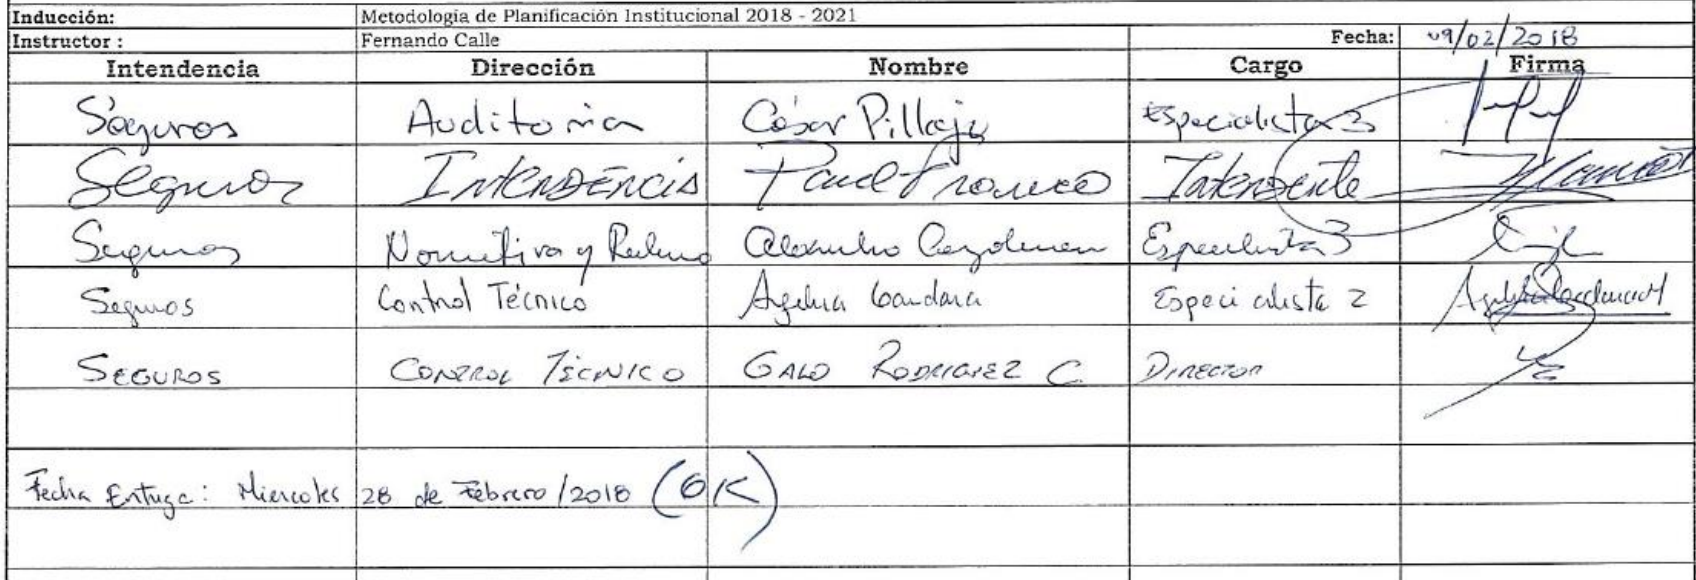 Inducción: Metodología de Planificación Institucional 2018 - 2021
Instructor : Fernando Calle Fecha: 09/02/2018
Intendencia Dirección Nombre Cargo Firma
Seguros Auditoria César Pillajo Especialista 3
Seguros INTENDENCIA Paul Franco Intendente
Seguros Normativa y Especialista 3
Seguros Control Técnico Gandara Especialista 2
SEGUROS CONTROL TÉCNICO GALO RODRIGUEZ C. DIRECTOR
Fecha Entrega: Miercoles 28 de Febrero/2018 (OK)